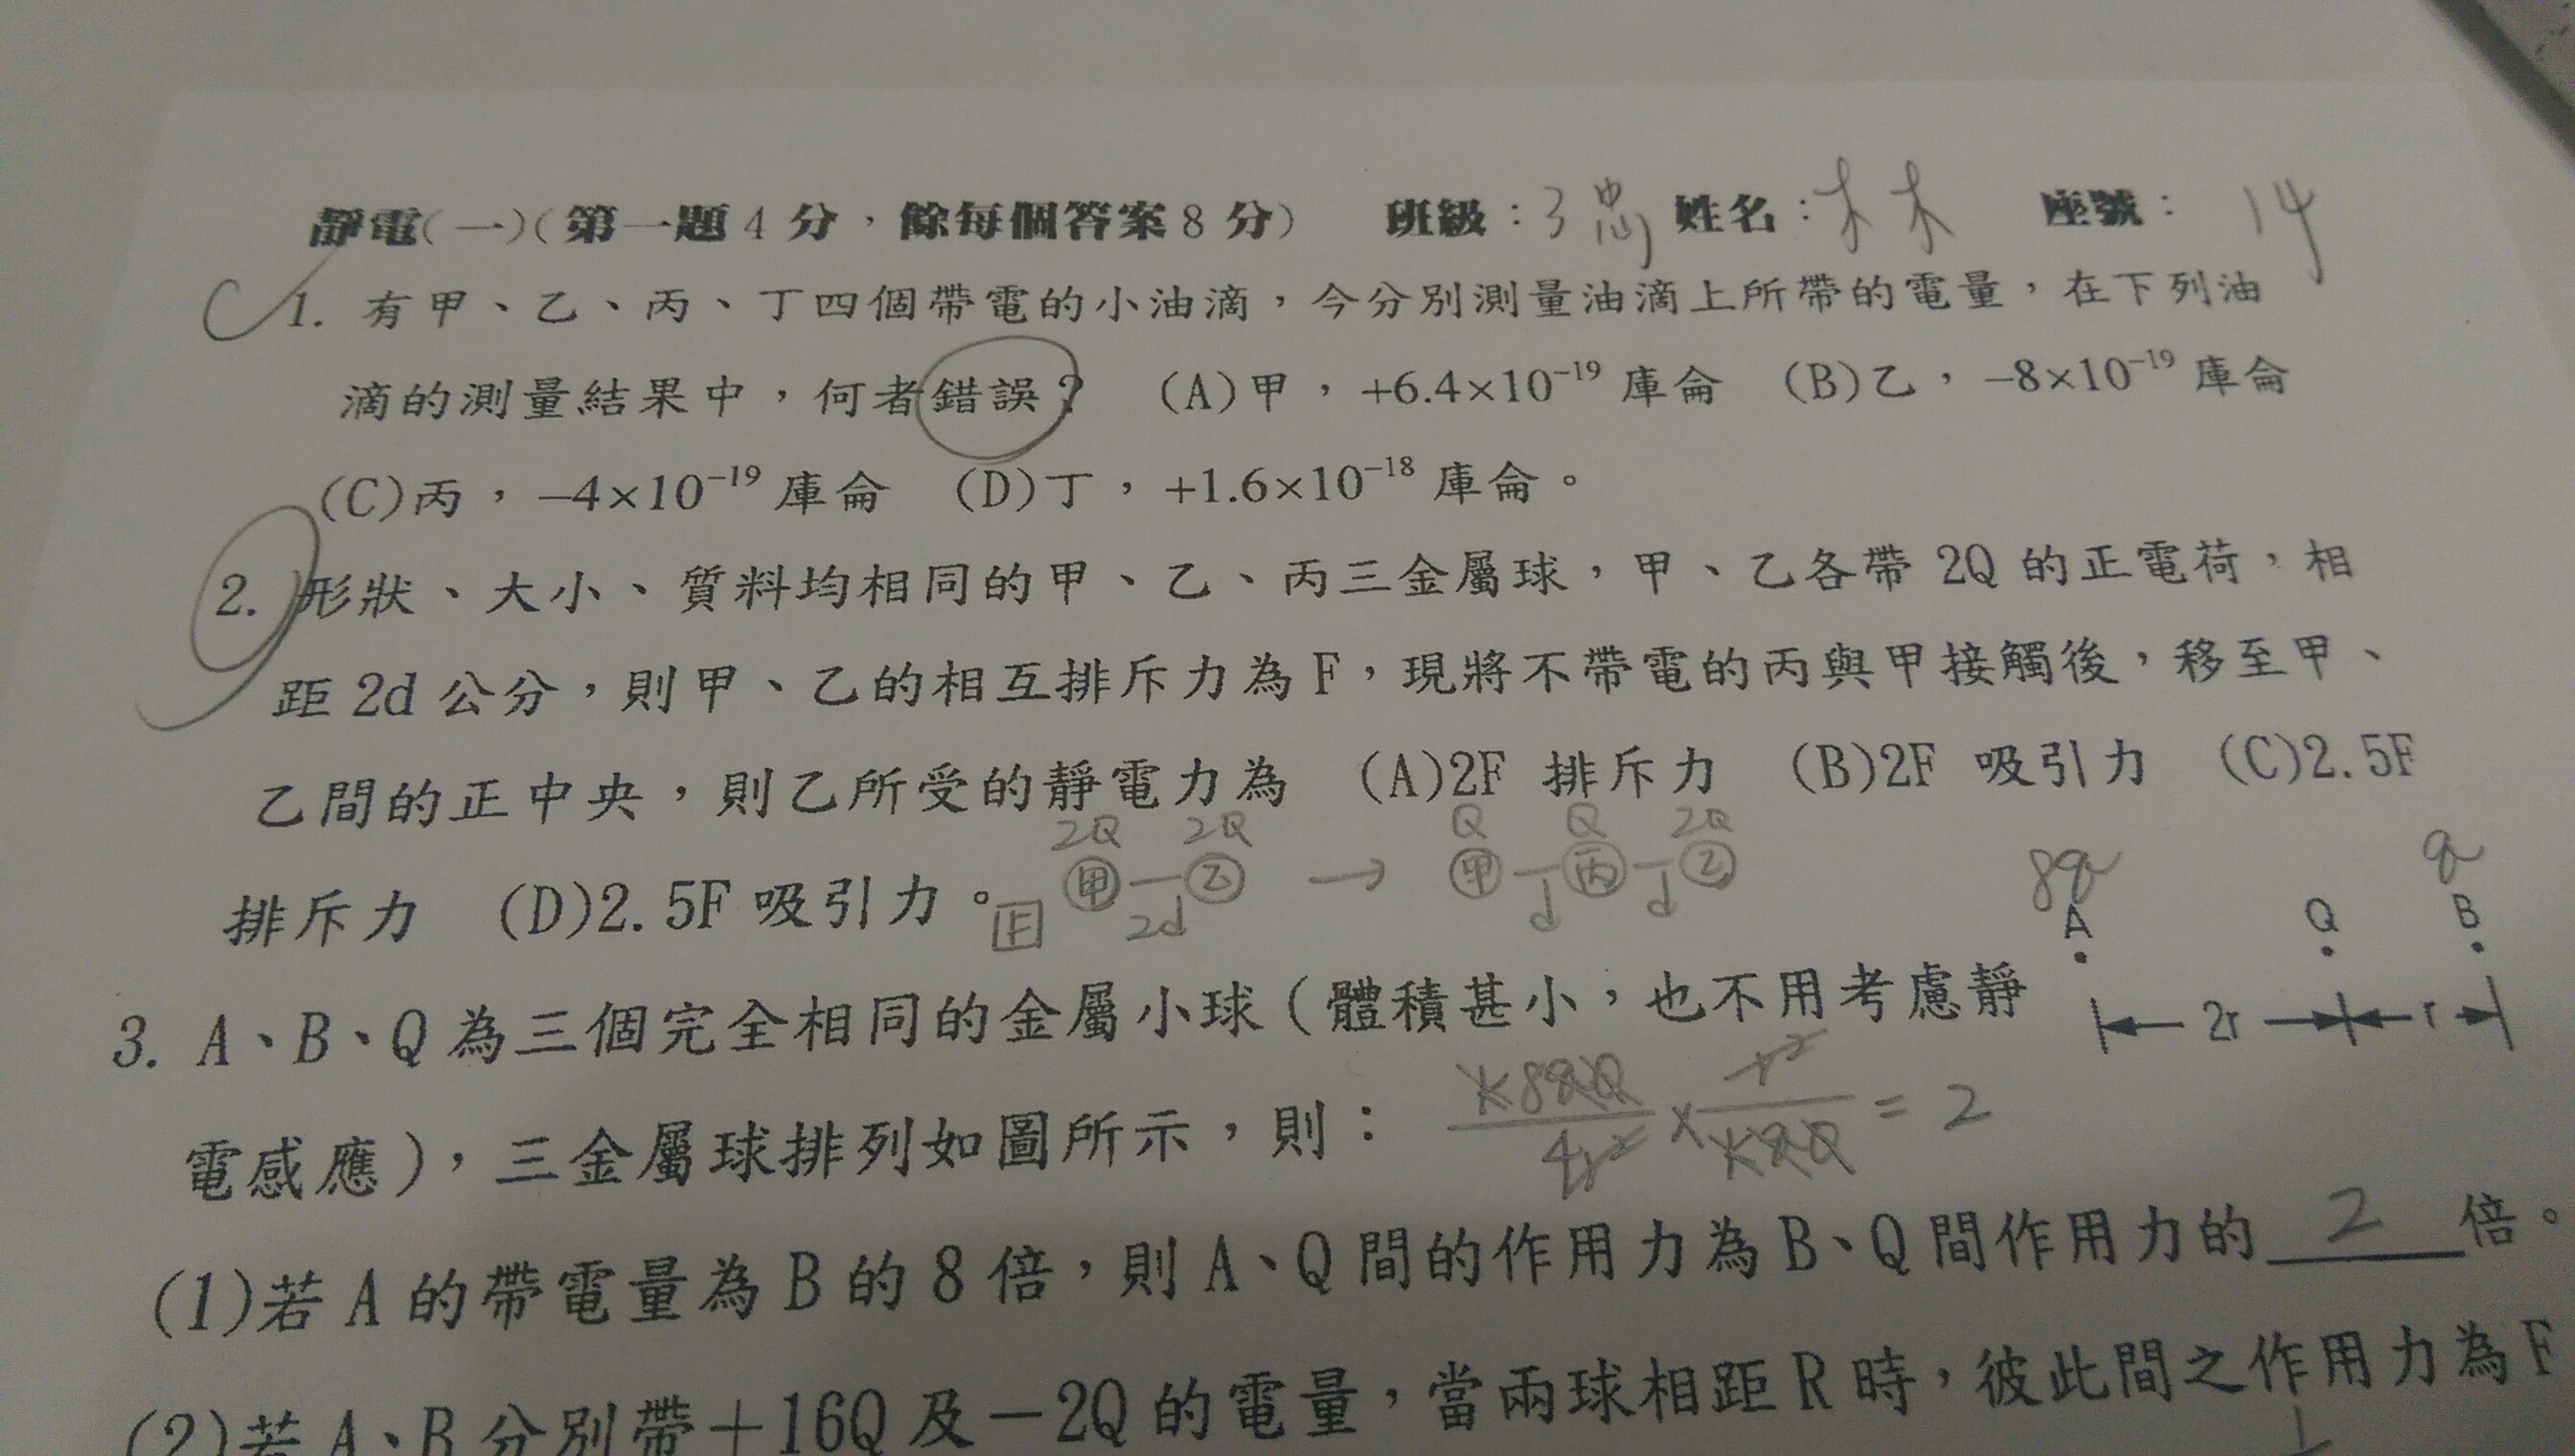 靜電(一)(第一題4分，餘每個答案8分) 班級：3忠 姓名：林 座號：14
C 1. 有甲、乙、丙、丁四個帶電的小油滴，今分別測量油滴上所帶的電量，在下列油
滴的測量結果中，何者錯誤？ (A)甲，+6.4×10⁻¹⁹ 庫侖 (B)乙，−8×10⁻¹⁹ 庫侖
(C)丙，−4×10⁻¹⁹ 庫侖 (D)丁，+1.6×10⁻¹⁸ 庫侖。
2. 形狀、大小、質料均相同的甲、乙、丙三金屬球，甲、乙各帶 2Q 的正電荷，相
距 2d 公分，則甲、乙的相互排斥力為 F，現將不帶電的丙與甲接觸後，移至甲、
乙間的正中央，則乙所受的靜電力為 (A)2F 排斥力 (B)2F 吸引力 (C)2.5F
2Q 2Q Q Q 2Q
排斥力 (D)2.5F 吸引力。 F 甲—乙 → 甲—丙—乙
2d d d
8q q
A Q B
3. A、B、Q 為三個完全相同的金屬小球（體積甚小，也不用考慮靜
2r r
電感應），三金屬球排列如圖所示，則： K8qQ/4r² × r²/KqQ = 2
(1)若 A 的帶電量為 B 的 8 倍，則 A、Q 間的作用力為 B、Q 間作用力的 2 倍。
(2)若 A、B 分別帶＋16Q 及－2Q 的電量，當兩球相距 R 時，彼此間之作用力為 F